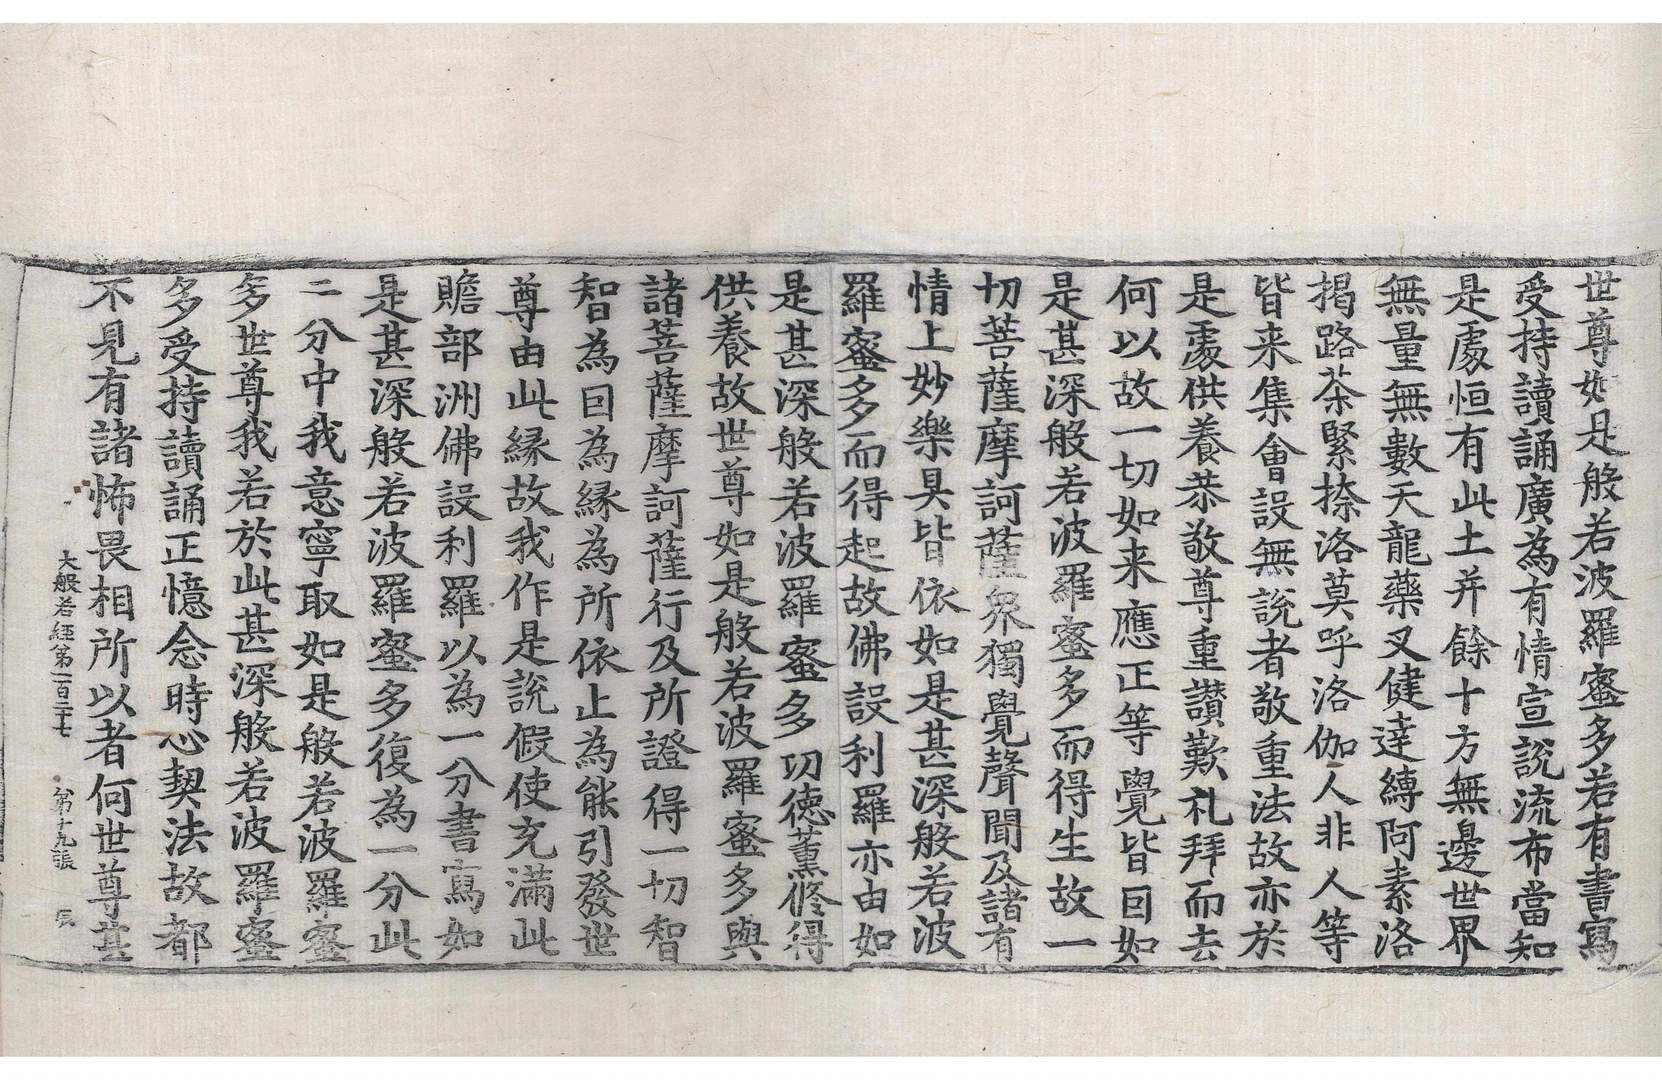 世尊如是般若波羅蜜多若有書寫
受持讀誦廣為有情宣說流布當知
是處恒有此土并餘十方無邊世界
無量無數天龍藥叉健達縛阿素洛
揭路茶緊捺洛莫呼洛伽人非人等
皆来集會設無說者敬重法故亦於
是處供養恭敬尊重讃歎礼拜而去
何以故一切如来應正等覺皆因如
是甚深般若波羅蜜多而得生故一
切菩薩摩訶薩衆獨覺聲聞及諸有
情上妙樂具皆依如是甚深般若波
羅蜜多而得起故佛設利羅亦由如
是甚深般若波羅蜜多功德薰修得
供養故世尊如是般若波羅蜜多與
諸菩薩摩訶薩行及所證得一切智
智為因為縁為所依止為能引發世
尊由此縁故我作是說假使充滿此
贍部洲佛設利羅以為一分書寫如
是甚深般若波羅蜜多復為一分此
二分中我意寧取如是般若波羅蜜
多世尊我若於此甚深般若波羅蜜
多受持讀誦正憶念時心契法故都
不見有諸怖畏相所以者何世尊甚
大般若經第一百二十七 第十九張